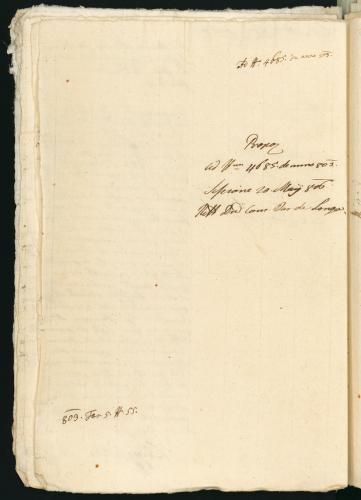 ad N 4685. de anno 803.
Propo
ad Num 4685 de anno 803.
Sessione 20 Maij 806
Dnd Com de Longo
803. Fas. 5. N 55.